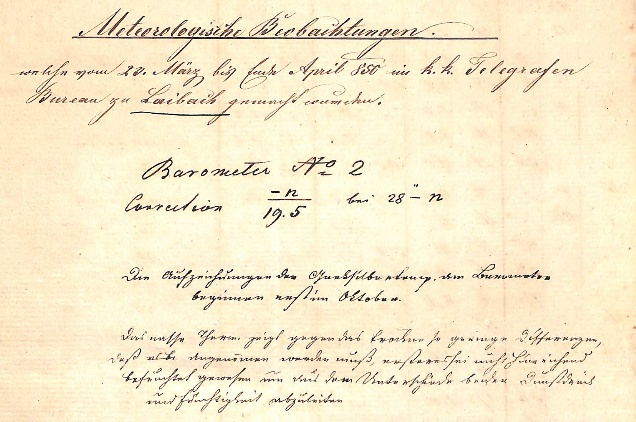 Meteorologische Beobachtungen.
welche vom 23. März bis Ende April 850 im k. k. Telegrafen
Bureau zu Laibach gemacht wurden.
Barometer No 2
Correction —n/19.5 bei 28" — n
Die Aufzeichnungen der Quecksilbertemp. am Barometer
beginnen erst im Oktober.
Das nasse Therm. zeigt gegen das trockne so geringe Differenzen,
daß angenommen werden muß, ersteres sei nicht hinreichend
befeuchtet gewesen um aus dem Unterschiede beider Dunstdruck
und Feuchtigkeit abzuleiten